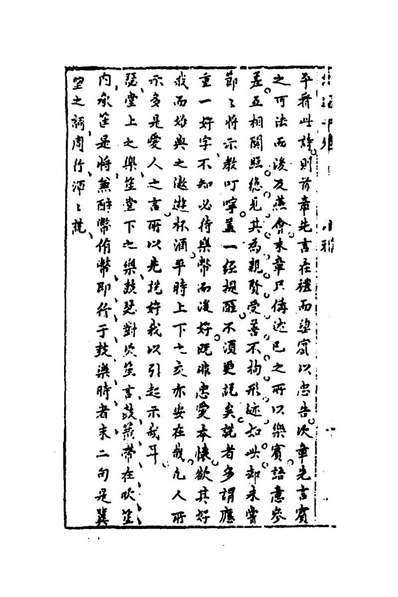 平看此詩則首章先言在禮而望賓以忠告次章先言賓
之可法而後及燕會末章只備述已之所以樂賓語意參
差互相關照總見其為親賢愛善不拘形迹如此却未嘗
節節將示教叮嚀蓋一經提醒不須更説矣説者多謂應
重一好字不知必待樂幣而後好既非忠愛本懷欲其好
我而始與之遨遊杯酒平時上下之交亦安在哉凡人所
示多是愛人之言所以先説好我以引起示我耳
瑟堂上之樂笙堂下之樂鼓瑟對吹笙言鼓簧帶在吹笙
内承筐是將兼酬幣侑幣即行于鼓樂時者末二句是冀
望之詞周行須